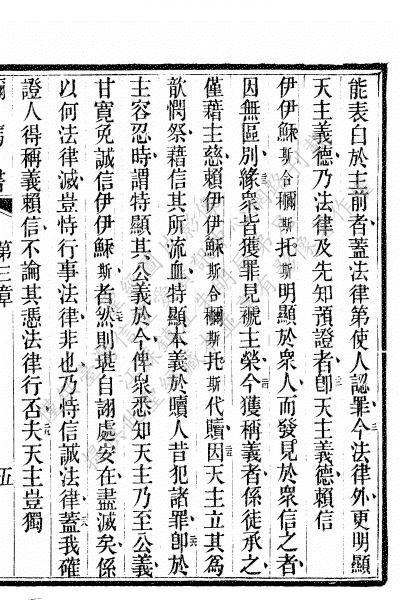 能表白於主前者蓋法律第使人認罪今法律外更明顯
天主義德乃法律及先知預證者卽天主義德賴信
伊伊穌斯合𥣫斯托斯明顯於衆人而發見於衆信之者
因無區別緣衆皆獲罪見褫主榮今獲稱義者係徒承之
僅藉主慈賴伊伊穌斯合𥣫斯托斯代贖因天主立其爲
歆憫祭藉信其所流血特顯本義於贖人昔犯諸罪卽於
主容忍時謂特顯其公義於今俾衆悉知天主乃至公義
甘寬免誠信伊伊穌斯者然則堪自詡處安在盡滅矣係
以何法律滅豈恃行事法律非也乃恃信誠法律蓋我確
證人得稱義賴信不論其憑法律行否夫天主豈獨
第三章
五